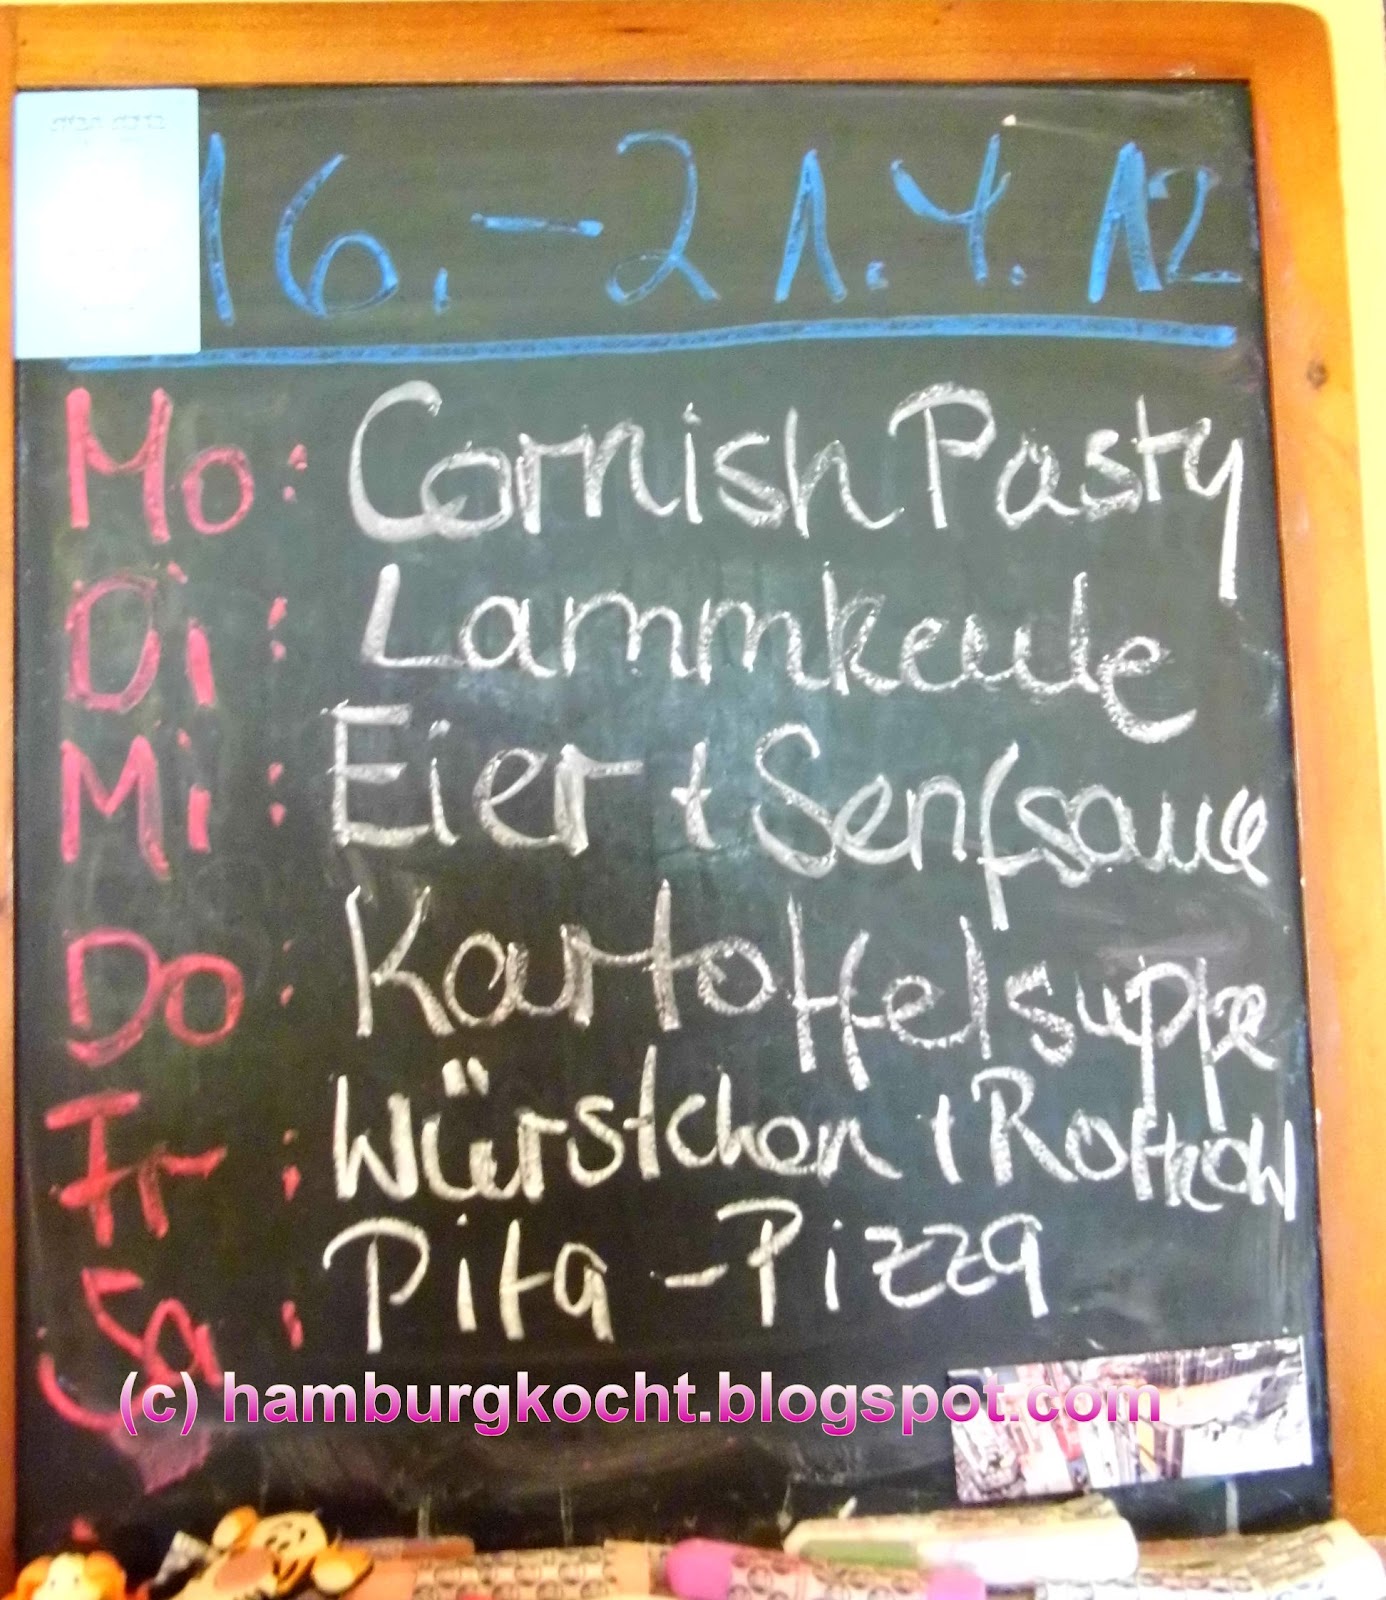 16.-21.4.12
Mo: Cornish Pasty
Di: Lammkeule
Mi: Eier + Senfsauce
Do: Kartoffelsuppe
Fr: Würstchen + Rotkohl
Sa: Pita-Pizza
(c) hamburgkocht.blogspot.com